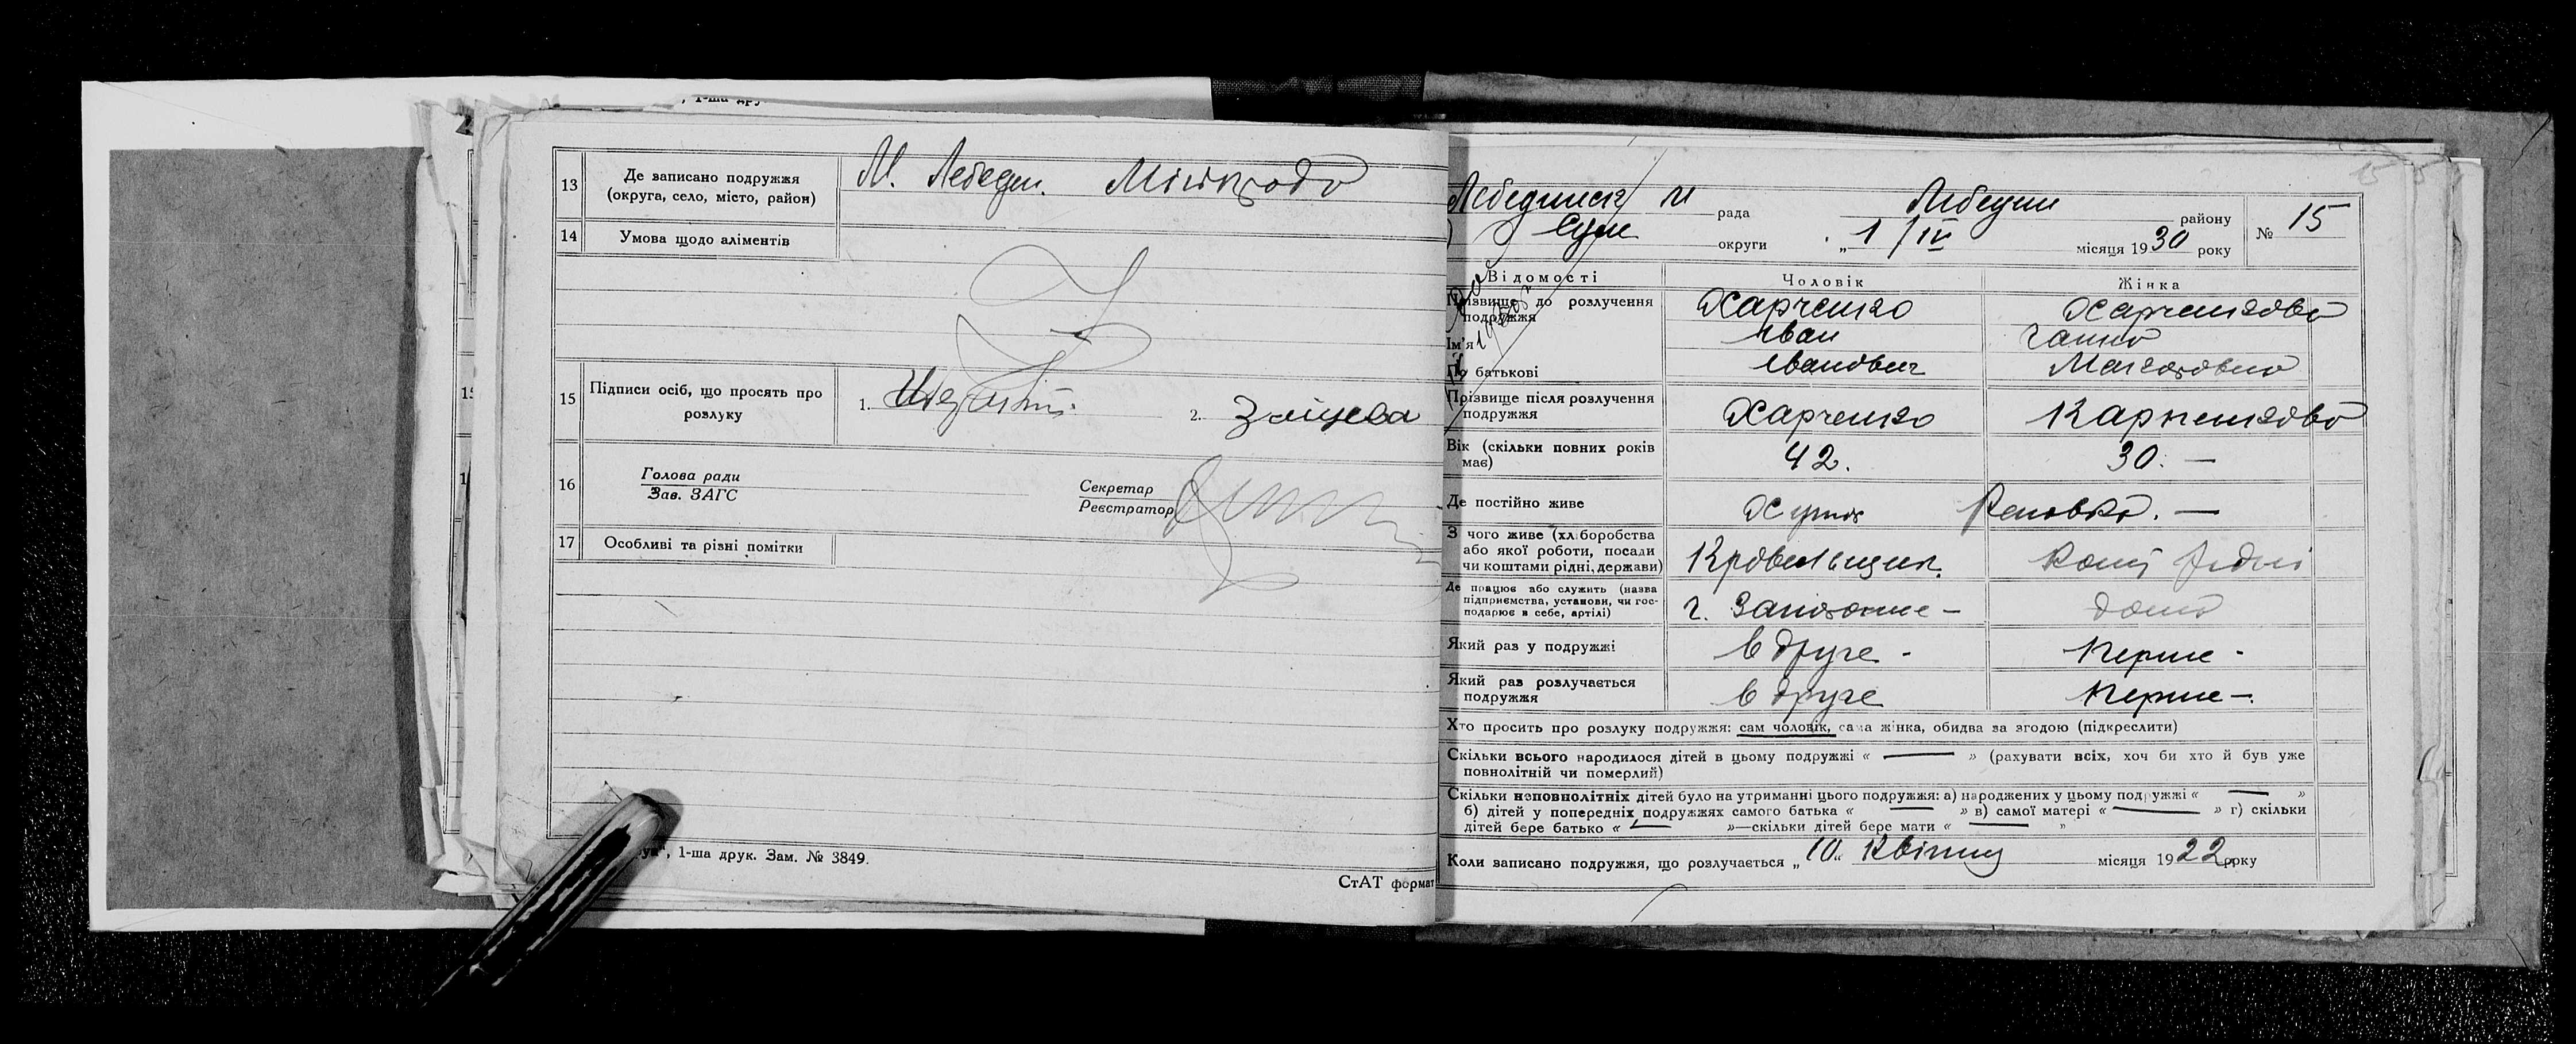 , 1-ша дру
13 Де записано подружжя
(округа, село, місто, район)
М. Лебедин. Міськрада
14 Умова щодо аліментів
15 Підписи осіб, що просять про
розлуку
1.
2. Зайцева
16 Голова ради
Зав. ЗАГС
Секретар
Реєстратор
17 Особливі та різні помітки
", 1-ша друк. Зам. № 3849.
СтАТ формат
15
Лебединськ м рада Лебедин району № 15
Сум округи „ 1 / IV місяця 1930 року
Відомості Чоловік Жінка
Прізвище до розлучення
подружжя
Харченко Харченкова
Ім'я Іван Ганна
По батькові Іванович
Прізвище після розлучення
подружжя
Харченко Харченкова
Вік (скільки повних років
має)
42. 30. —
Де постійно живе
З чого живе (хліборобства
або якої роботи, посади
чи коштами рідні, держави)
Кровельщик.
Де працює або служить (назва
підприємства, установи, чи гос-
подарює в себе, артілі)
дома
Який раз у подружжі вдруге - перше -
Який раз розлучається
подружжя
вдруге перше —.
Хто просить про розлуку подружжя: сам чоловік, сама жінка, обидва за згодою (підкреслити)
Скільки всього народилося дітей в цьому подружжі « — » (рахувати всіх, хоч би хто й був уже
повнолітній чи померлий)
Скільки неповнолітніх дітей було на утриманні цього подружжя: а) народжених у цьому подружжі « — »
б) дітей у попередніх подружжях самого батька « — » в) самої матері « — » г) скільки
дітей бере батько « — »—скільки дітей бере мати « — »
Коли записано подружжя, що розлучається „ 10 “ Квітня місяця 1922 року